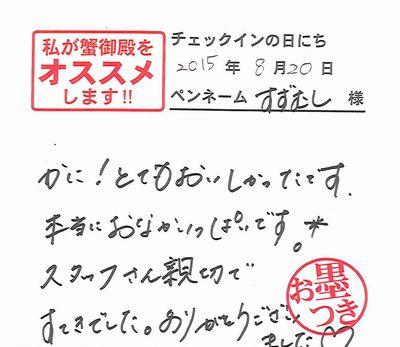 私が蟹御殿を
オススメ
します!!
チェックインの日にち
2015 年 8 月 20 日
ペンネーム すずむし 様
かに！とてもおいしかったです.
本当におなかいっぱいです。*
スタッフさん親切で
すてきでした。ありがとうござい
ました♡
お墨つき